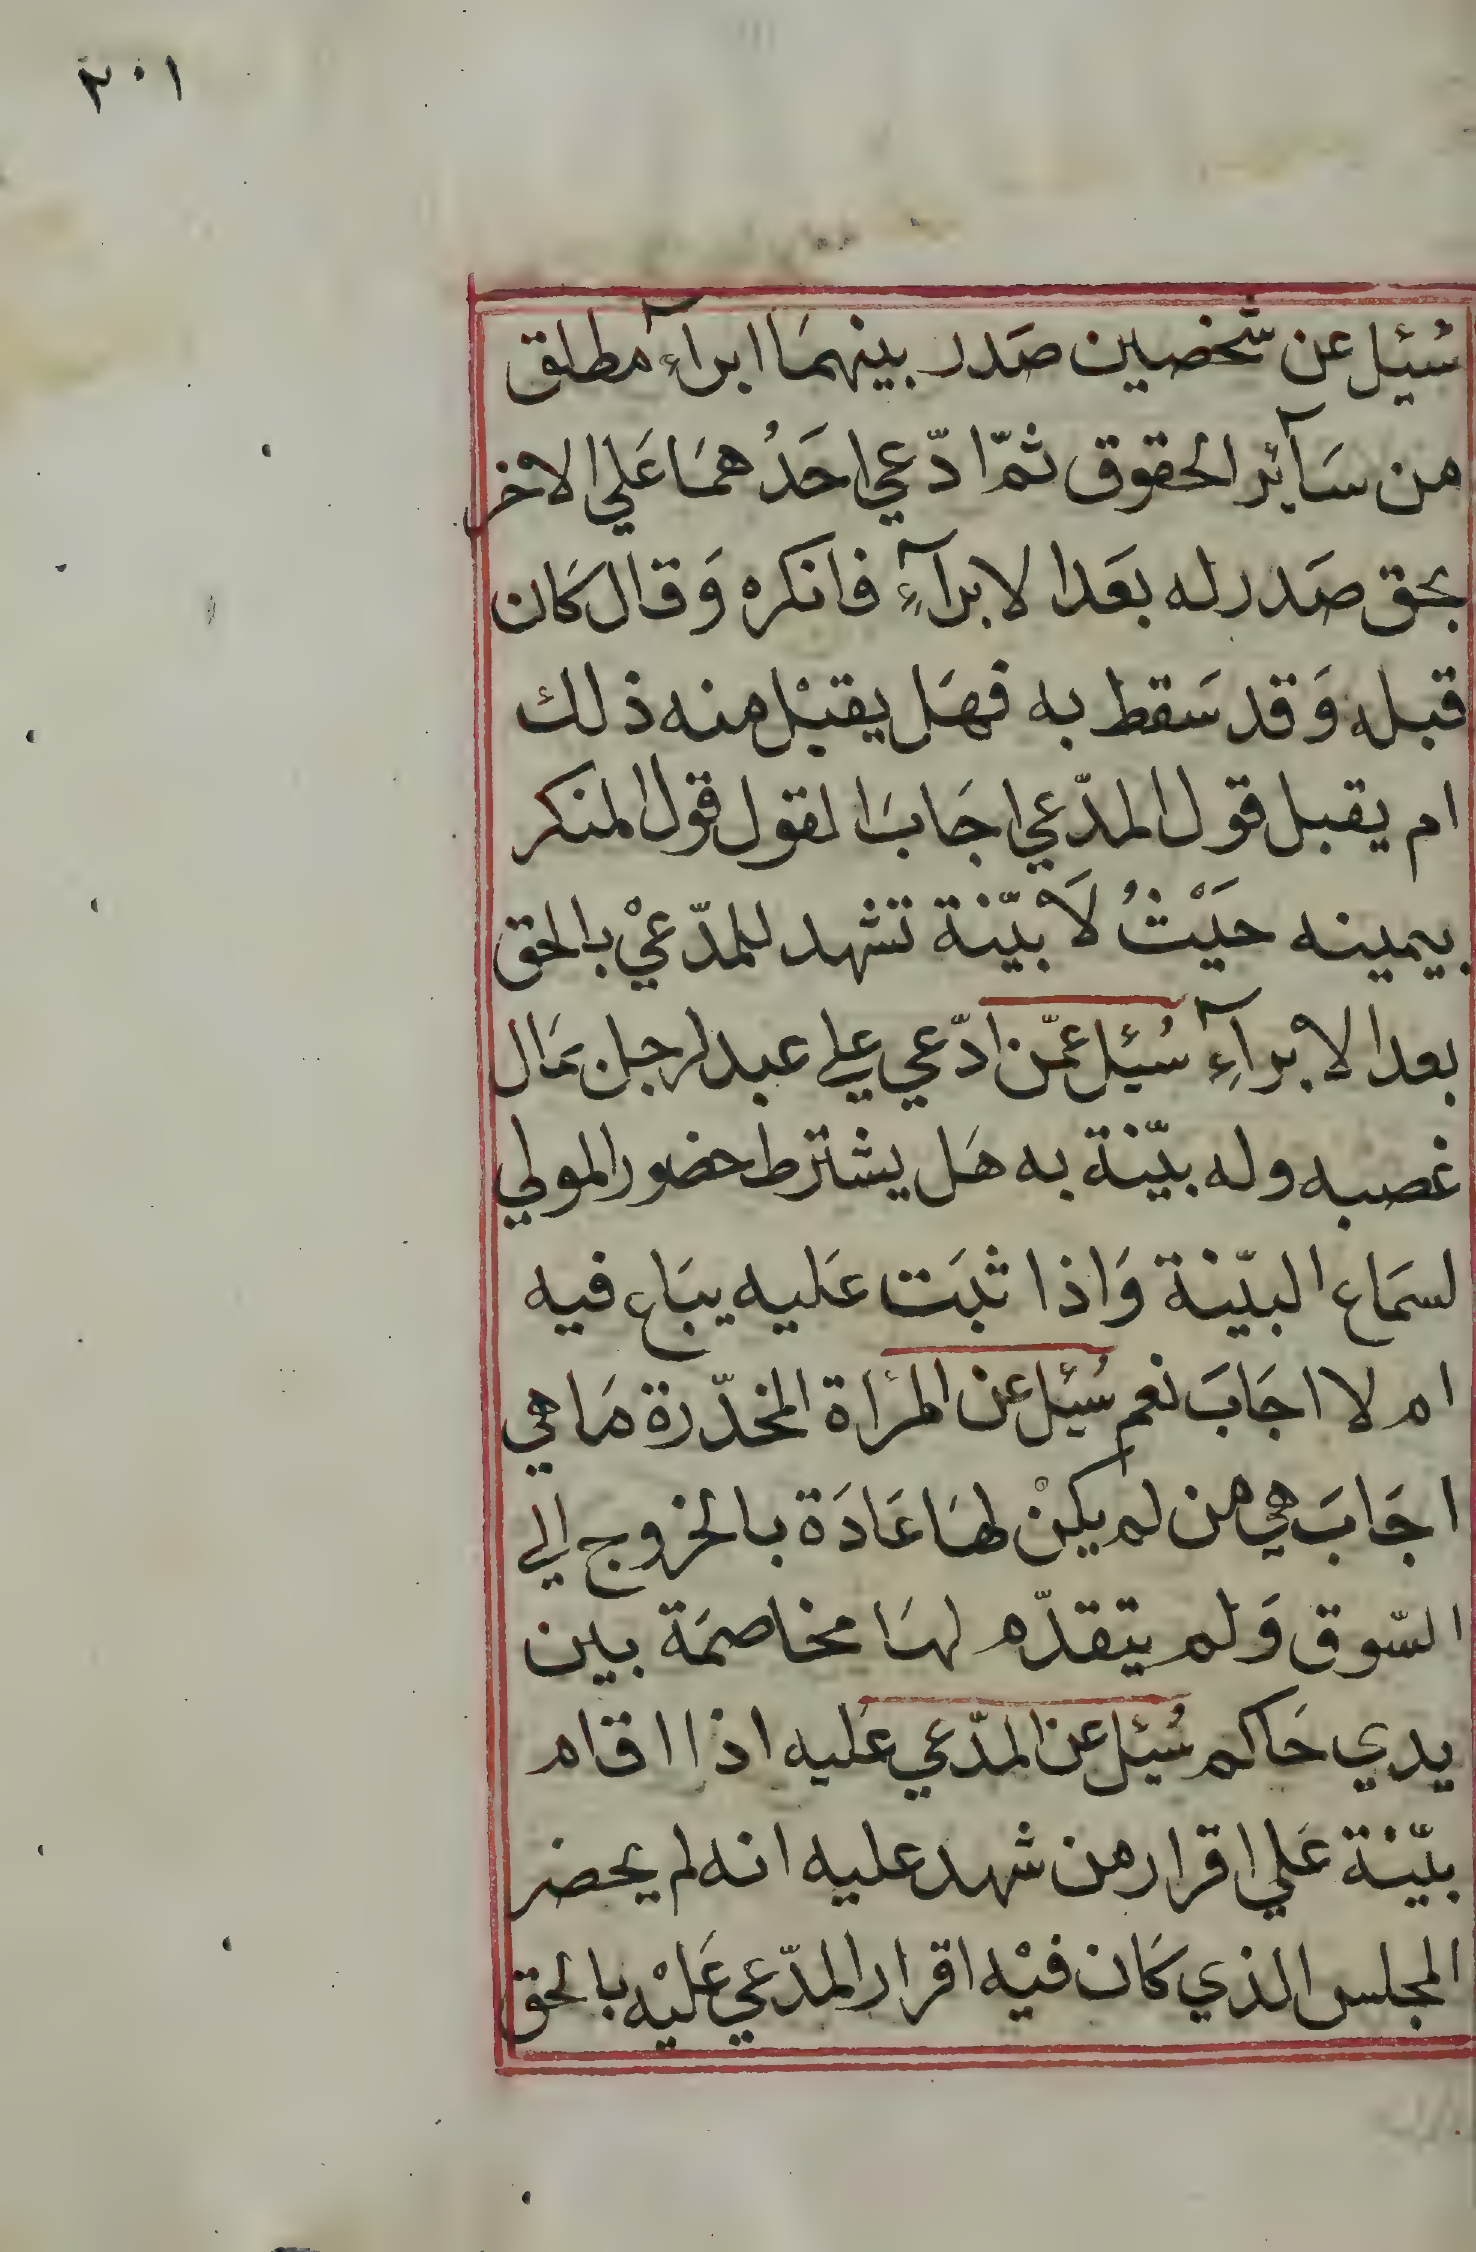 ٢٠١
سُئِل عن شخصين صَدر بينهمَا ابرآء مطلق
من سَآئر الحقوق ثمّ ادّعي احَدُهمَا عَلي الاخر
بحق صَدر له بعَد الابرآءِ فانكره وَقال كَان
قبله وَقد سَقط به فهَل يقبْل منه ذلك
ام يقبل قول المدّعي اجَابَ القول قول المنكر
بيمينه حَيْثُ لَا بيّنة تشهد للمدّعيْ بالحق
بعد الابْرآءِ سُئِل عمّن ادّعي علي عبد لرجل بمَال
غصبه وله بيّنة به هَل يشترط حضور المولي
لسمَاع البيّنة وَاذا ثبَت عَليه يبَاع فيه
ام لا اجَابَ نعم سُئِل عن المرأة المخدّرة مَا هي
اجَابَ هي من لم يكنْ لهَا عَادَة بالخروج الي
السّوق وَلم يتقدّم لهَا مخاصمَة بين
يدي حَاكم سُئِل عن المدّعي عَليه اذا اقام
بيّنة عَلي اقرار من شهد عليه انه لم يحضر
المجلس الذي كَان فيْه اقرار المدّعي عَليْه بالحق